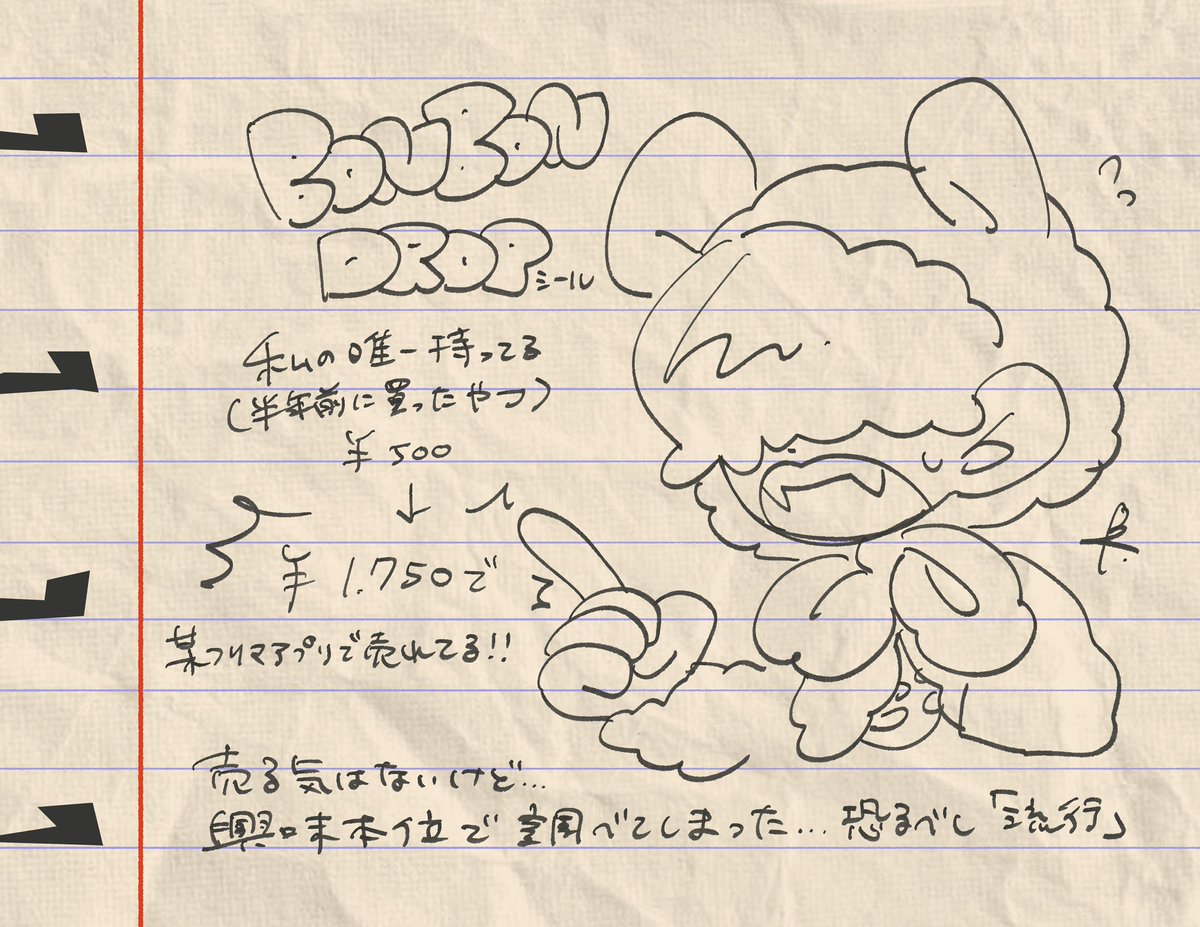 BONBON
DROPシール
私の唯一持ってる
(半年前に買ったやつ)
¥500
↓
¥1.750で
某フリマアプリで売れてる!!
売る気はないけど…
興味本位で調べてしまった…恐るべし「流行」